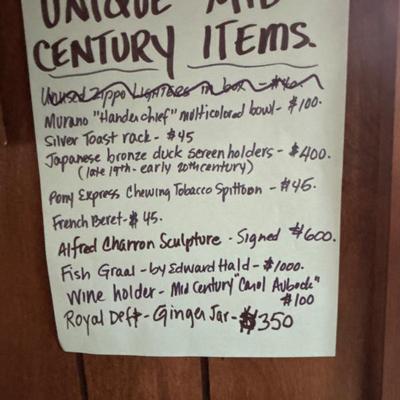 UNIQUE MID
CENTURY ITEMS.
Unused Zippo LIGHTERS in box - $40.
Murano "Handerchief" multicolored bowl - $100.
Silver Toast rack - $45
Japanese bronze duck screen holders - $400.
(late 19th - early 20th century)
Pony Express Chewing Tobacco Spittoon - $45.
French Beret - $45.
Alfred Charron Sculpture - Signed $600.
Fish Graal - by Edward Hald - $1000.
Wine holder - Mid Century "Carol Aubock"
$100
Royal Deft - Ginger Jar - $350